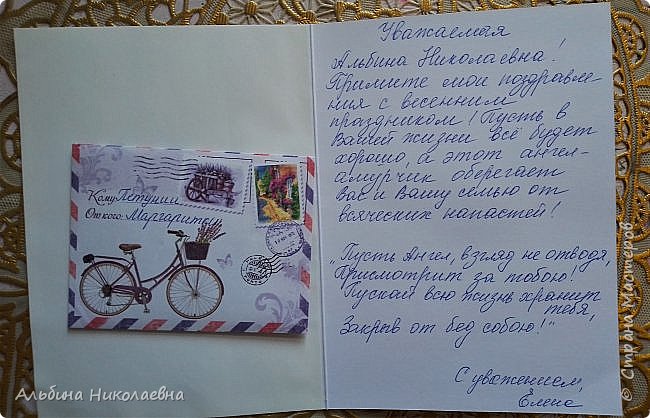 Уважаемая
Альбина Николаевна!
Примите мои поздравле-
ния с весенним
праздником! Пусть в
Вашей жизни всё будет
хорошо, а этот ангел-
амурчик оберегает
Вас и Вашу семью от
всяческих напастей!
„Пусть Ангел, взгляд не отводя,
Присмотрит за тобою!
Пускай всю жизнь хранит
тебя,
Закрыв от бед собою!"
С уважением,
Елена
Кому Петунии
От кого: Маргаритки
Альбина Николаевна
© Страна Мастеров